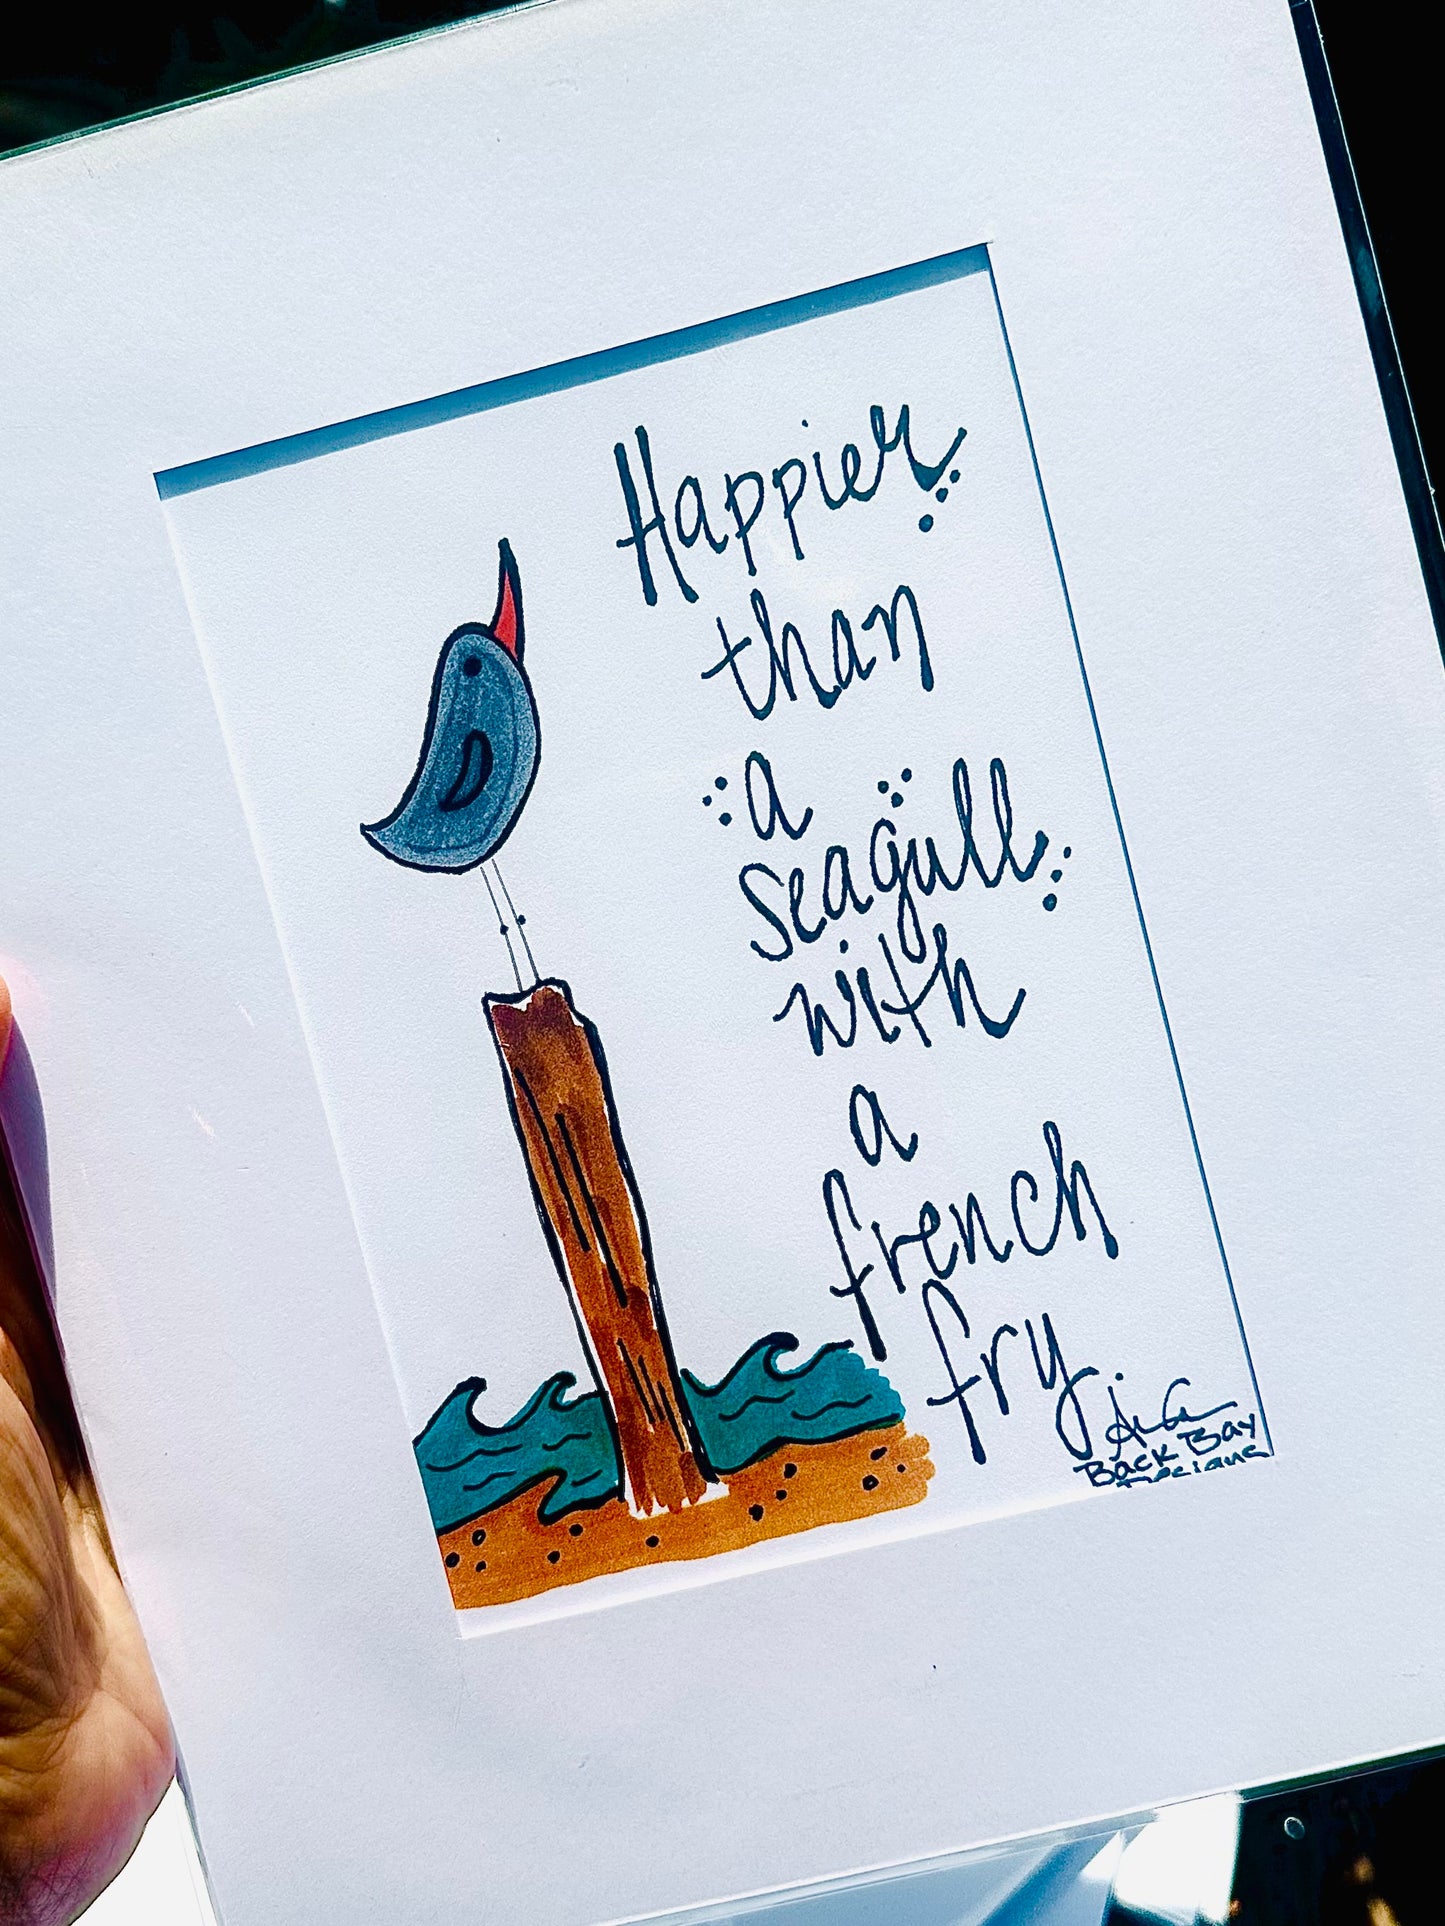 Happier
than
a
seagull
with
a
french
fry
Back Bay
Designs